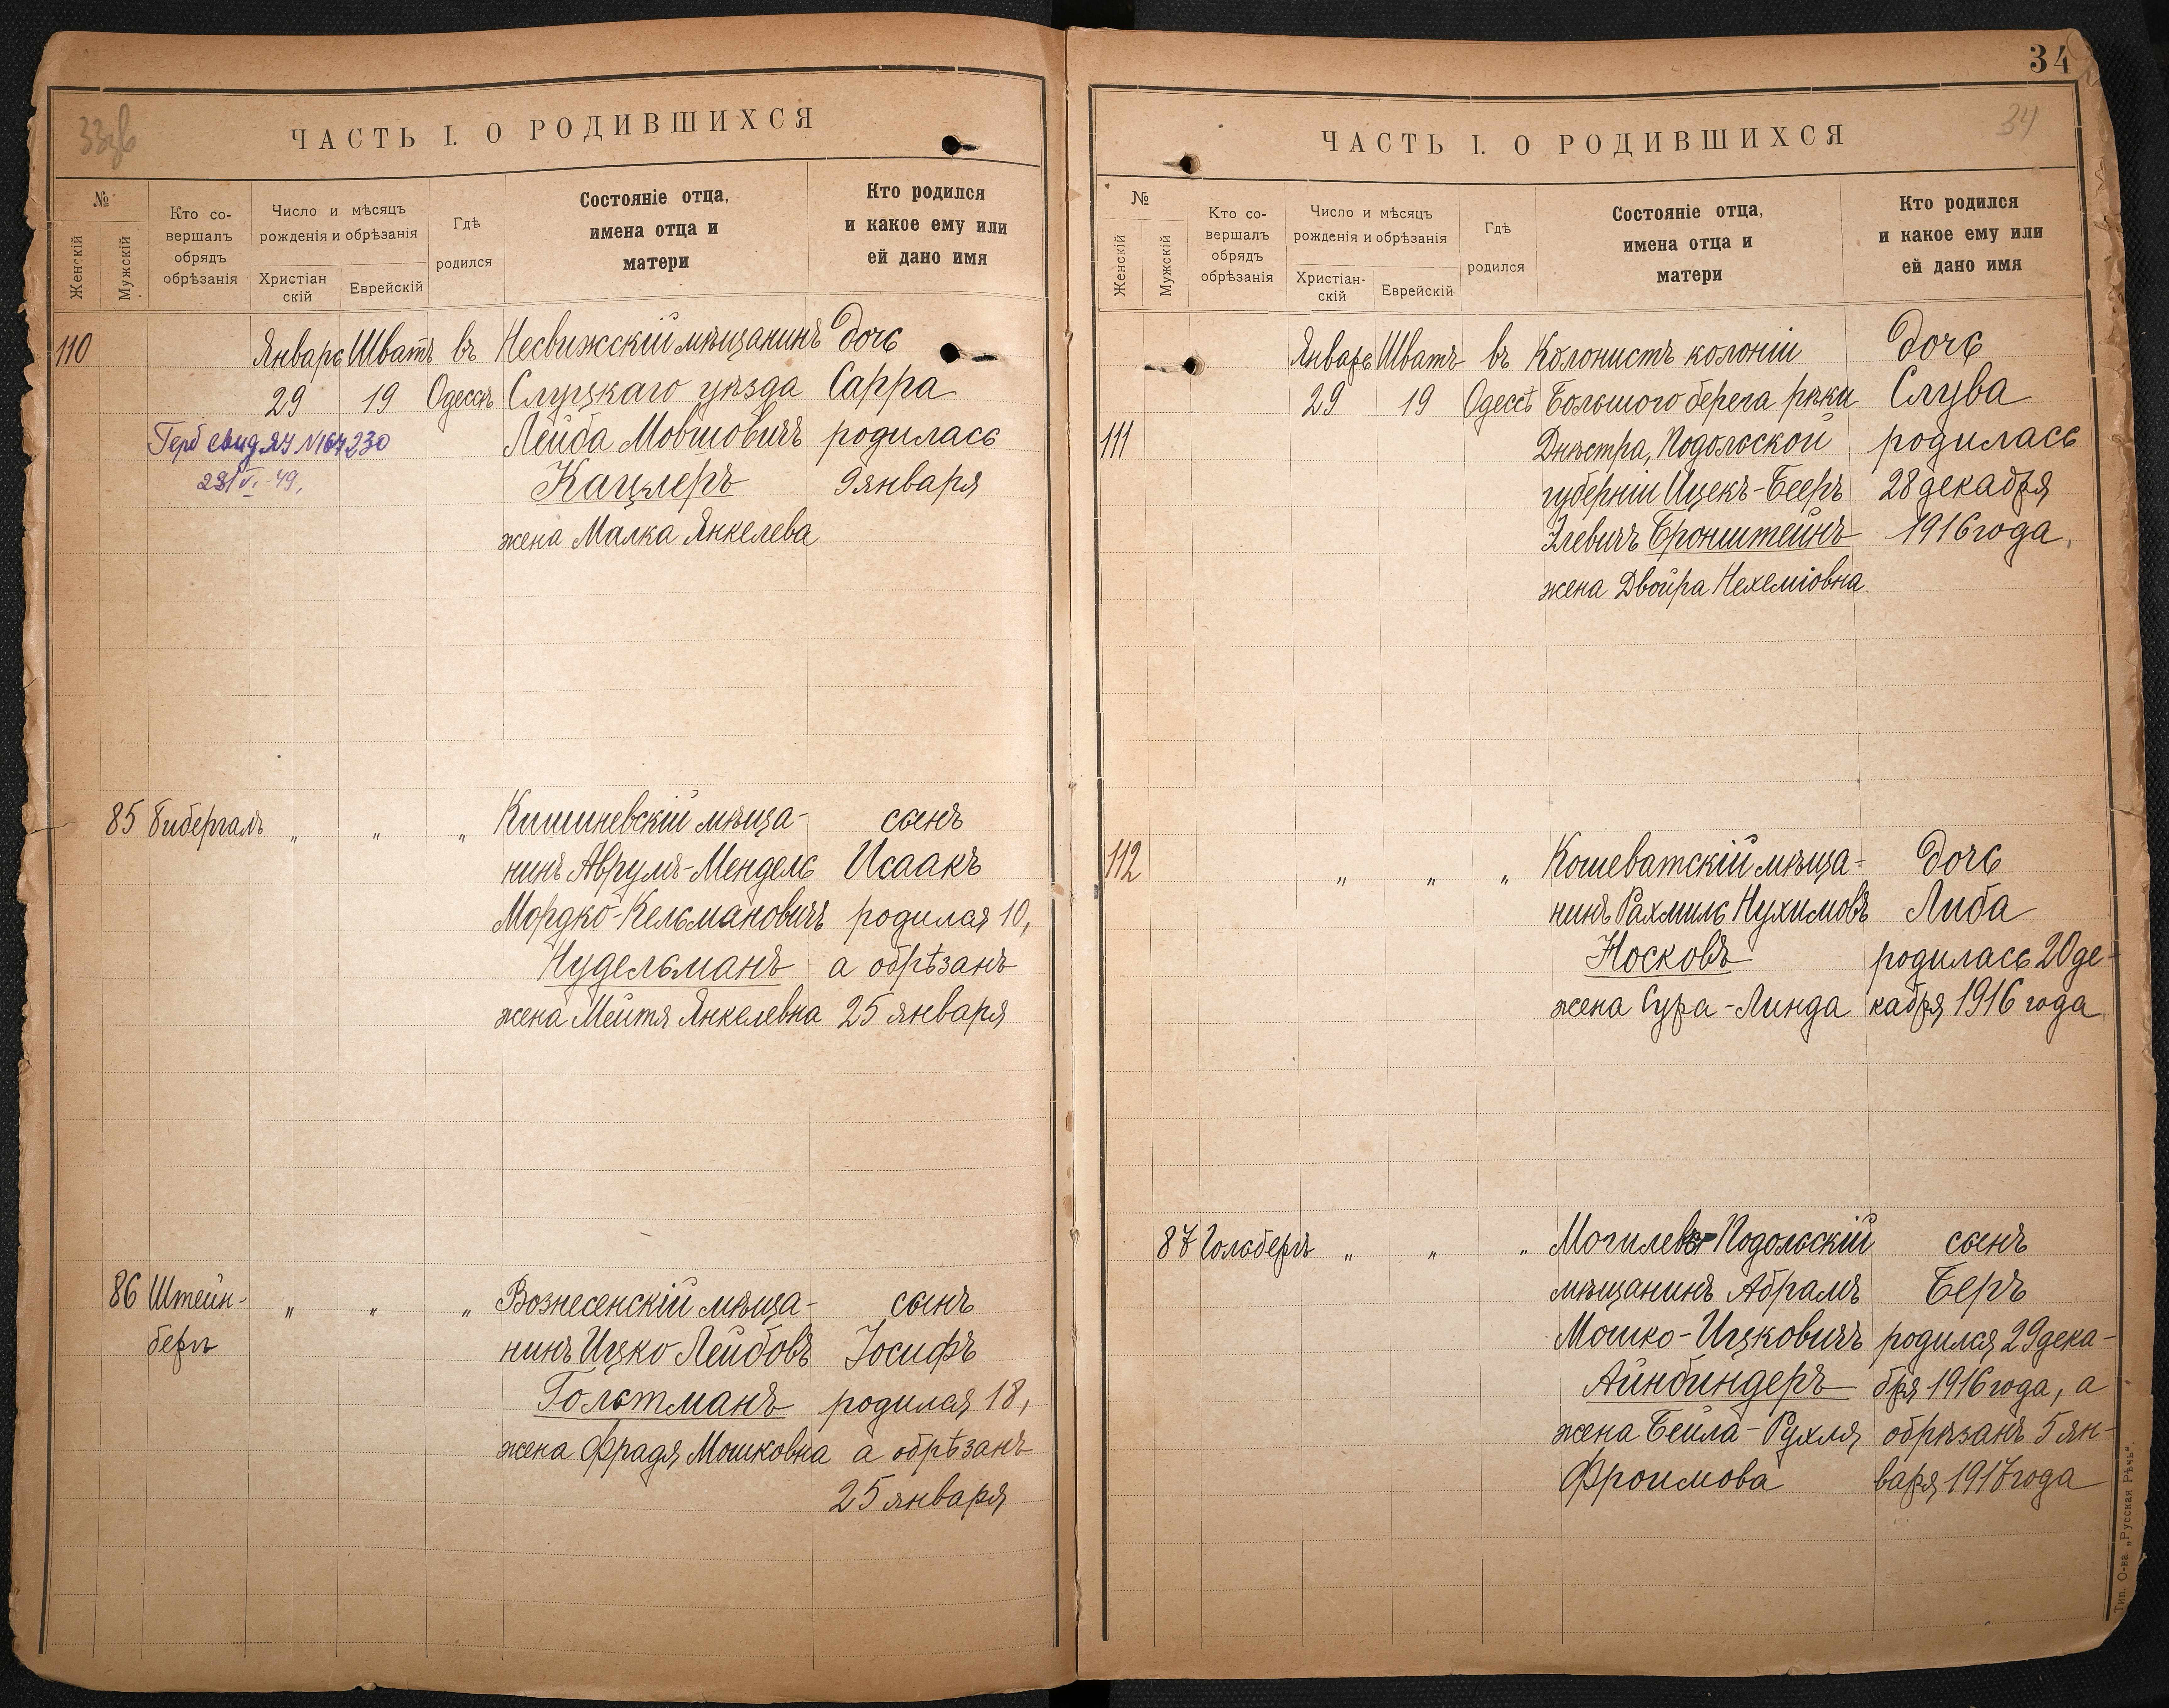 33зв
ЧАСТЬ I. О РОДИВШИХСЯ
№
Женскій
Мужскій
Кто со-
вершалъ
обрядъ
обрѣзанія
Число и мѣсяцъ
рожденія и обрѣзанія
Христіан
скій
Еврейскій
Гдѣ
родился
Состояніе отца,
имена отца и
матери
Кто родился
и какое ему или
ей дано имя
110 Январь Шватъ въ Несвижскій мѣщанинъ дочь
29 19 Одессѣ Слуцкаго уѣзда Сарра
Лейба Мовшовичъ родилась
Кацлеръ 9 января
жена Малка Янкелева
свид ЯЗ №164230
49,
85 Гибергалъ „ „ „ Кишиневскій мѣща- сынъ
нинъ Аврумъ-Мендель Исаакъ
Мордко-Кельмановичъ родился 10,
Нудельманъ а обрѣзанъ
жена Мейтя Янкелевна 25 января
86 Штейн- „ „ „ Вознесенскій мѣща- сынъ
бергъ нинъ Ицко Лейбовъ Іосифъ
Гольтманъ родился 18,
жена Фрадя Мошковна а обрѣзанъ
25 января
34
34
ЧАСТЬ I. О РОДИВШИХСЯ
№
Женскій
Мужскій
Кто со-
вершалъ
обрядъ
обрѣзанія
Число и мѣсяцъ
рожденія и обрѣзанія
Христіан-
скій
Еврейскій
Гдѣ
родился
Состояніе отца,
имена отца и
матери
Кто родился
и какое ему или
ей дано имя
Январь Шватъ въ Колонистъ колоніи дочь
29 19 Одессѣ Большого берега рѣки Слува
111 Днѣстра, Подольской родилась
губерніи Ицекъ-Бееръ 28 декабря
Элевичъ Бронштейнъ 1916 года,
жена Двойра Нехеміовна.
112 „ „ „ Кошеватскій мѣща- дочь
нинъ Рахмиль Нухимовъ Либа
Носковъ родилась 20 де-
жена Сура-Линда кабря 1916 года
87 Гольбергъ „ „ „ Могилевъ-Подольскій сынъ
мѣщанинъ Абрамъ Беръ
Мошко-Ицковичъ родился 29 дека-
Айнбиндеръ бря 1916 года, а
жена Бейла-Рухля обрѣзанъ 5 ян-
Фроимова варя 1917 года
Тип. О-ва „Русская Рѣчь“.